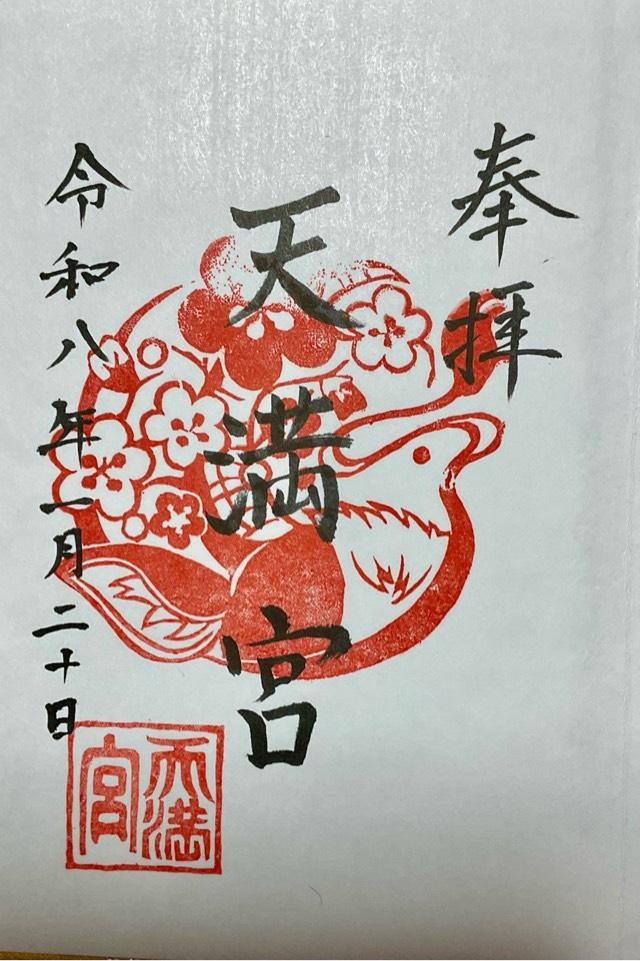 奉拝
天満宮
令和八年一月二十日
天満宮